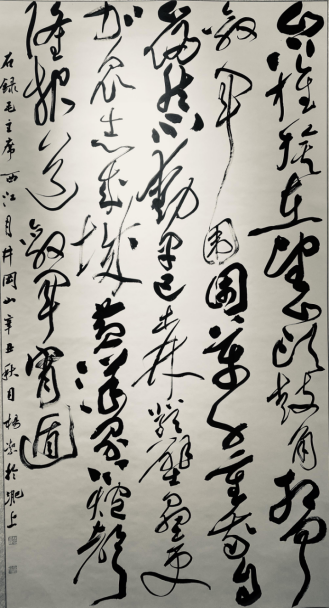 山下旌旗在望山頭鼓角相聞
敵軍圍困萬千重我自
巋然不動早已森嚴壁壘更
加眾志成城黃洋界上炮聲
隆報道敵軍宵遁
右錄毛主席西江月井岡山辛丑秋月楊於肥上